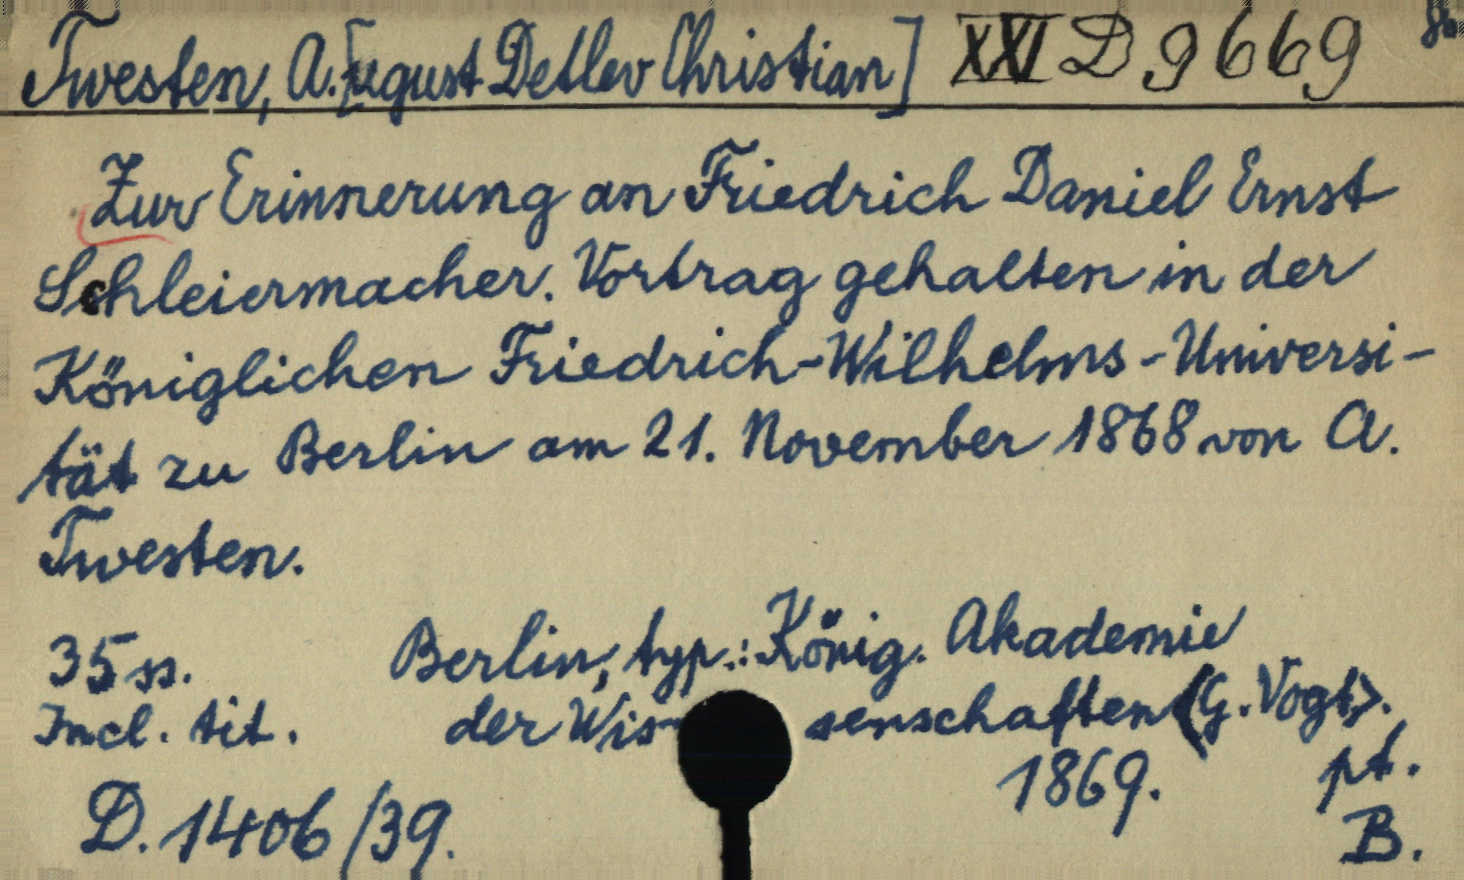 Twesten, A.[ugust Detlev Christian] XXI D 9669 8o
Zur Erinnerung an Friedrich Daniel Ernst
Schleiermacher. Vortrag gehalten in der
Königlichen Friedrich-Wilhelms-Universi-
tät zu Berlin am 21. November 1868 von A.
Twesten.
35 ss. Berlin, typ.: König. Akademie
Incl. tit. der Wis- senschaften (G. Vogt).
1869. pt.
D. 1406/39. B.